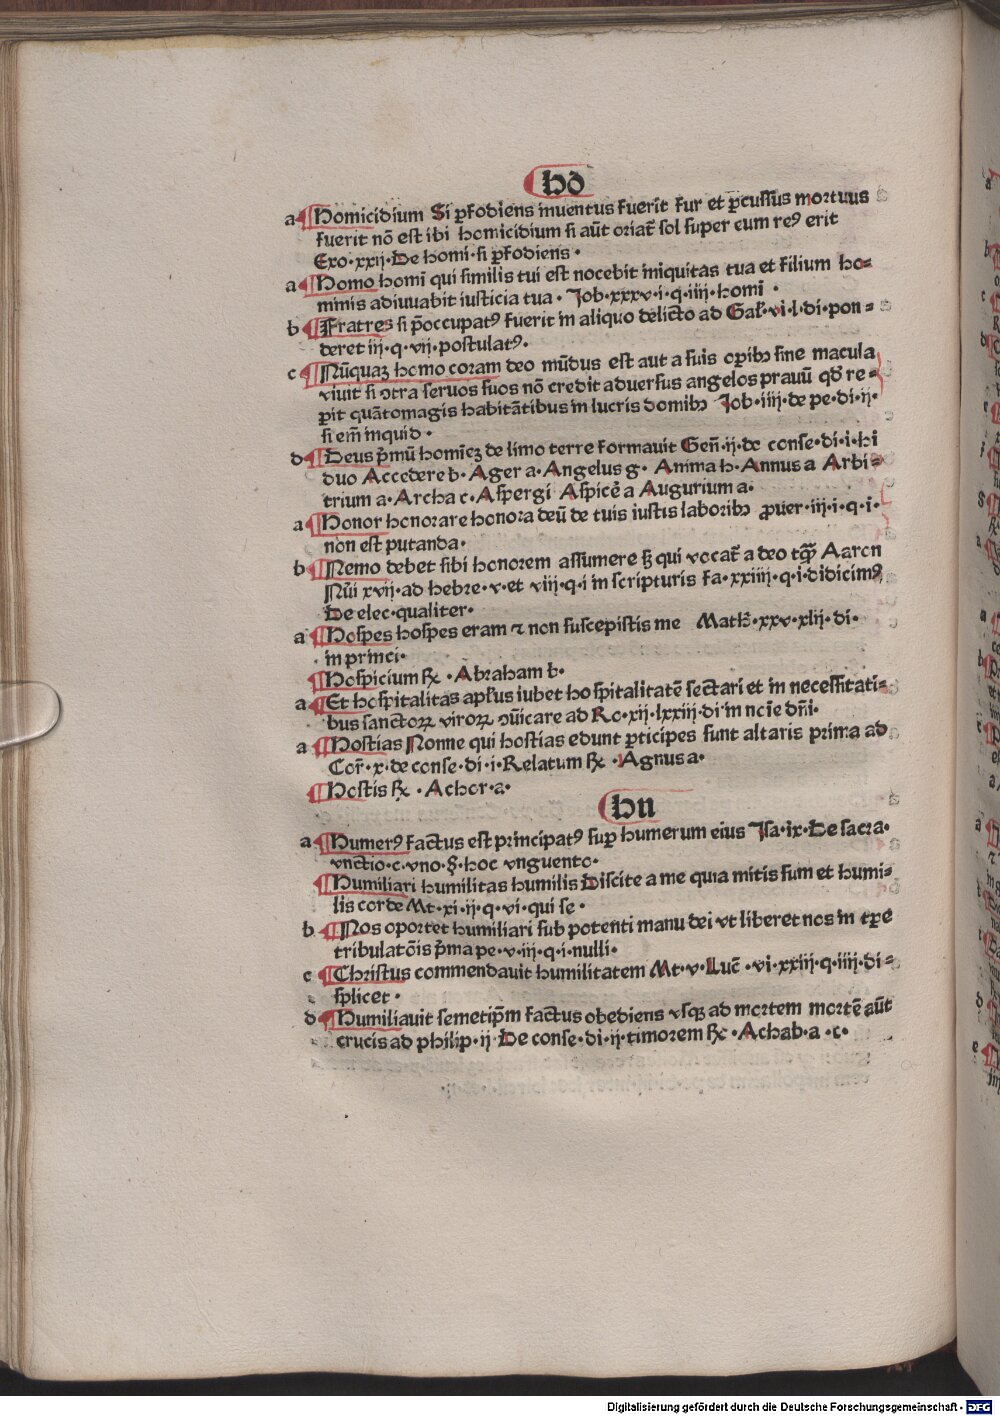 Ho
a Homicidium Si ꝑfodiens inuentus fuerit fur et ꝑcussus mortuus
fuerit nō est ibi homicidium si aūt oriat̄ sol super eum reꝰ erit
Exo·xxij·De homi·si ꝑfodiens·
a Homo homī qui similis tui est nocebit iniquitas tua et filium ho=
minis adiuuabit iusticia tua· Job·xxxv·i·q·iiij·homī·
b Fratres si p̄occupatꝰ fuerit in aliquo delicto ad Gal̄·vi·l·di·pon=
deret iij·q·vij·postulatꝰ·
c Nūquaꝫ homo coram deo mūdus est aut a suis oꝑibꝫ sine macula
viuit si ↄtra seruos suos nō credit aduersus angelos prauū qd̄ re=
ꝑit quātomagis habitātibus in lucris domibꝫ Job·iiij·de pe·di·ij·
si em̄ inquid·
d Deus p̄mū homīeꝫ de limo terre formauit Gen̄·ij·de conse·di·i·hi
duo Accedere b·Ager a·Angelus g· Anima h·Annus a Arbi=
trium a·Archa c·Aspergi Aspicē a Augurium a·
a Honor honorare honora deū de tuis iustis laboribꝫ ꝓuer·iij·i·q·i·
non est putanda·
b Nemo debet sibi honorem assumere sꝫ qui vocat̄ a deo tqꝫ̄ Aaron
Nūi xvij·ad hebre·v·et viij·q·i in scripturis fa·xxiiij·q·i·didicimꝰ
De elec·qualiter·
a Hospes hospes eram ⁊ non suscepistis me Math̄·xxv·xlij·di·
in princi·
Hospicium ℞ ·Abraham b·
a Et hospitalitas apl̄us iubet hospitalitatē sectari et in necessitati=
bus sanctoꝝ viroꝝ ↄūicare ad Ro·xij·lxxiij·di·in noīe dn̄i·
a Hostias Nonne qui hostias edunt ꝑticipes sunt altaris prima ad
Cor̄·x·de conse·di·i·Relatum ℞ ·Agnus a·
Hostis ℞ ·Achor·a·
Hu
a Humerꝰ factus est principatꝰ suꝑ humerum eius Jsa·ix·De sacra·
vnctio·c·vno·§·hoc vnguento·
Humiliari humilitas humilis Discite a me quia mitis sum et humi=
lis corde Mt·xi·ij·q·vi·qui se·
b Nos oportet humiliari sub potenti manu dei vt liberet nos in tꝑe
tribulatōis p̄ma pe·v·iij·q·i·nulli·
c Christus commendauit humilitatem Mt·v·Luc̄·vi·xxiij·q·iiij·di=
splicet·
d Humiliauit semetip̄m factus obediens vsqꝫ ad mortem mortē aūt
crucis ad philip·ij·De conse·di·ij·timorem ℞ ·Achab·a·c·
Digitalisierung gefördert durch die Deutsche Forschungsgemeinschaft - DFG